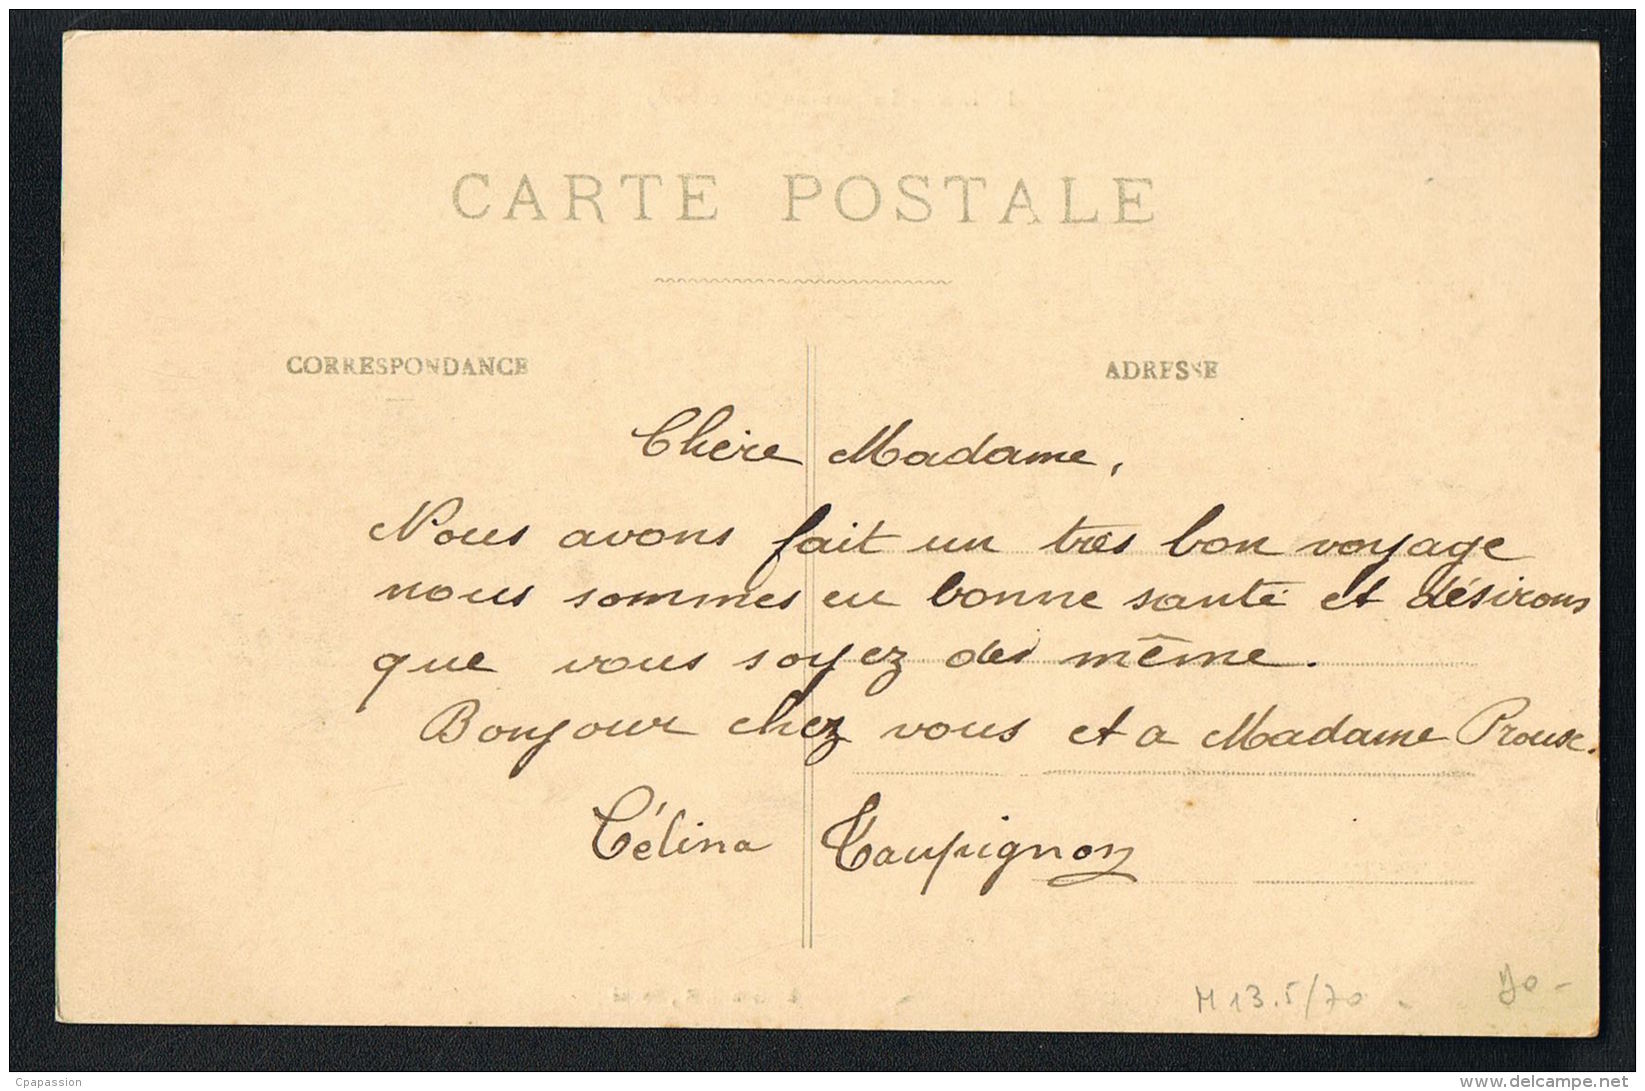 CARTE POSTALE
CORRESPONDANCE
ADRESSE
Chère Madame,
Nous avons fait un très bon voyage
nous sommes en bonne santé et désirons
que vous soyez de même.
Bonjour chez vous et a Madame Prouse.
Célina Taupignon
M 13.5/70
Cpapassion
www.delcampe.net